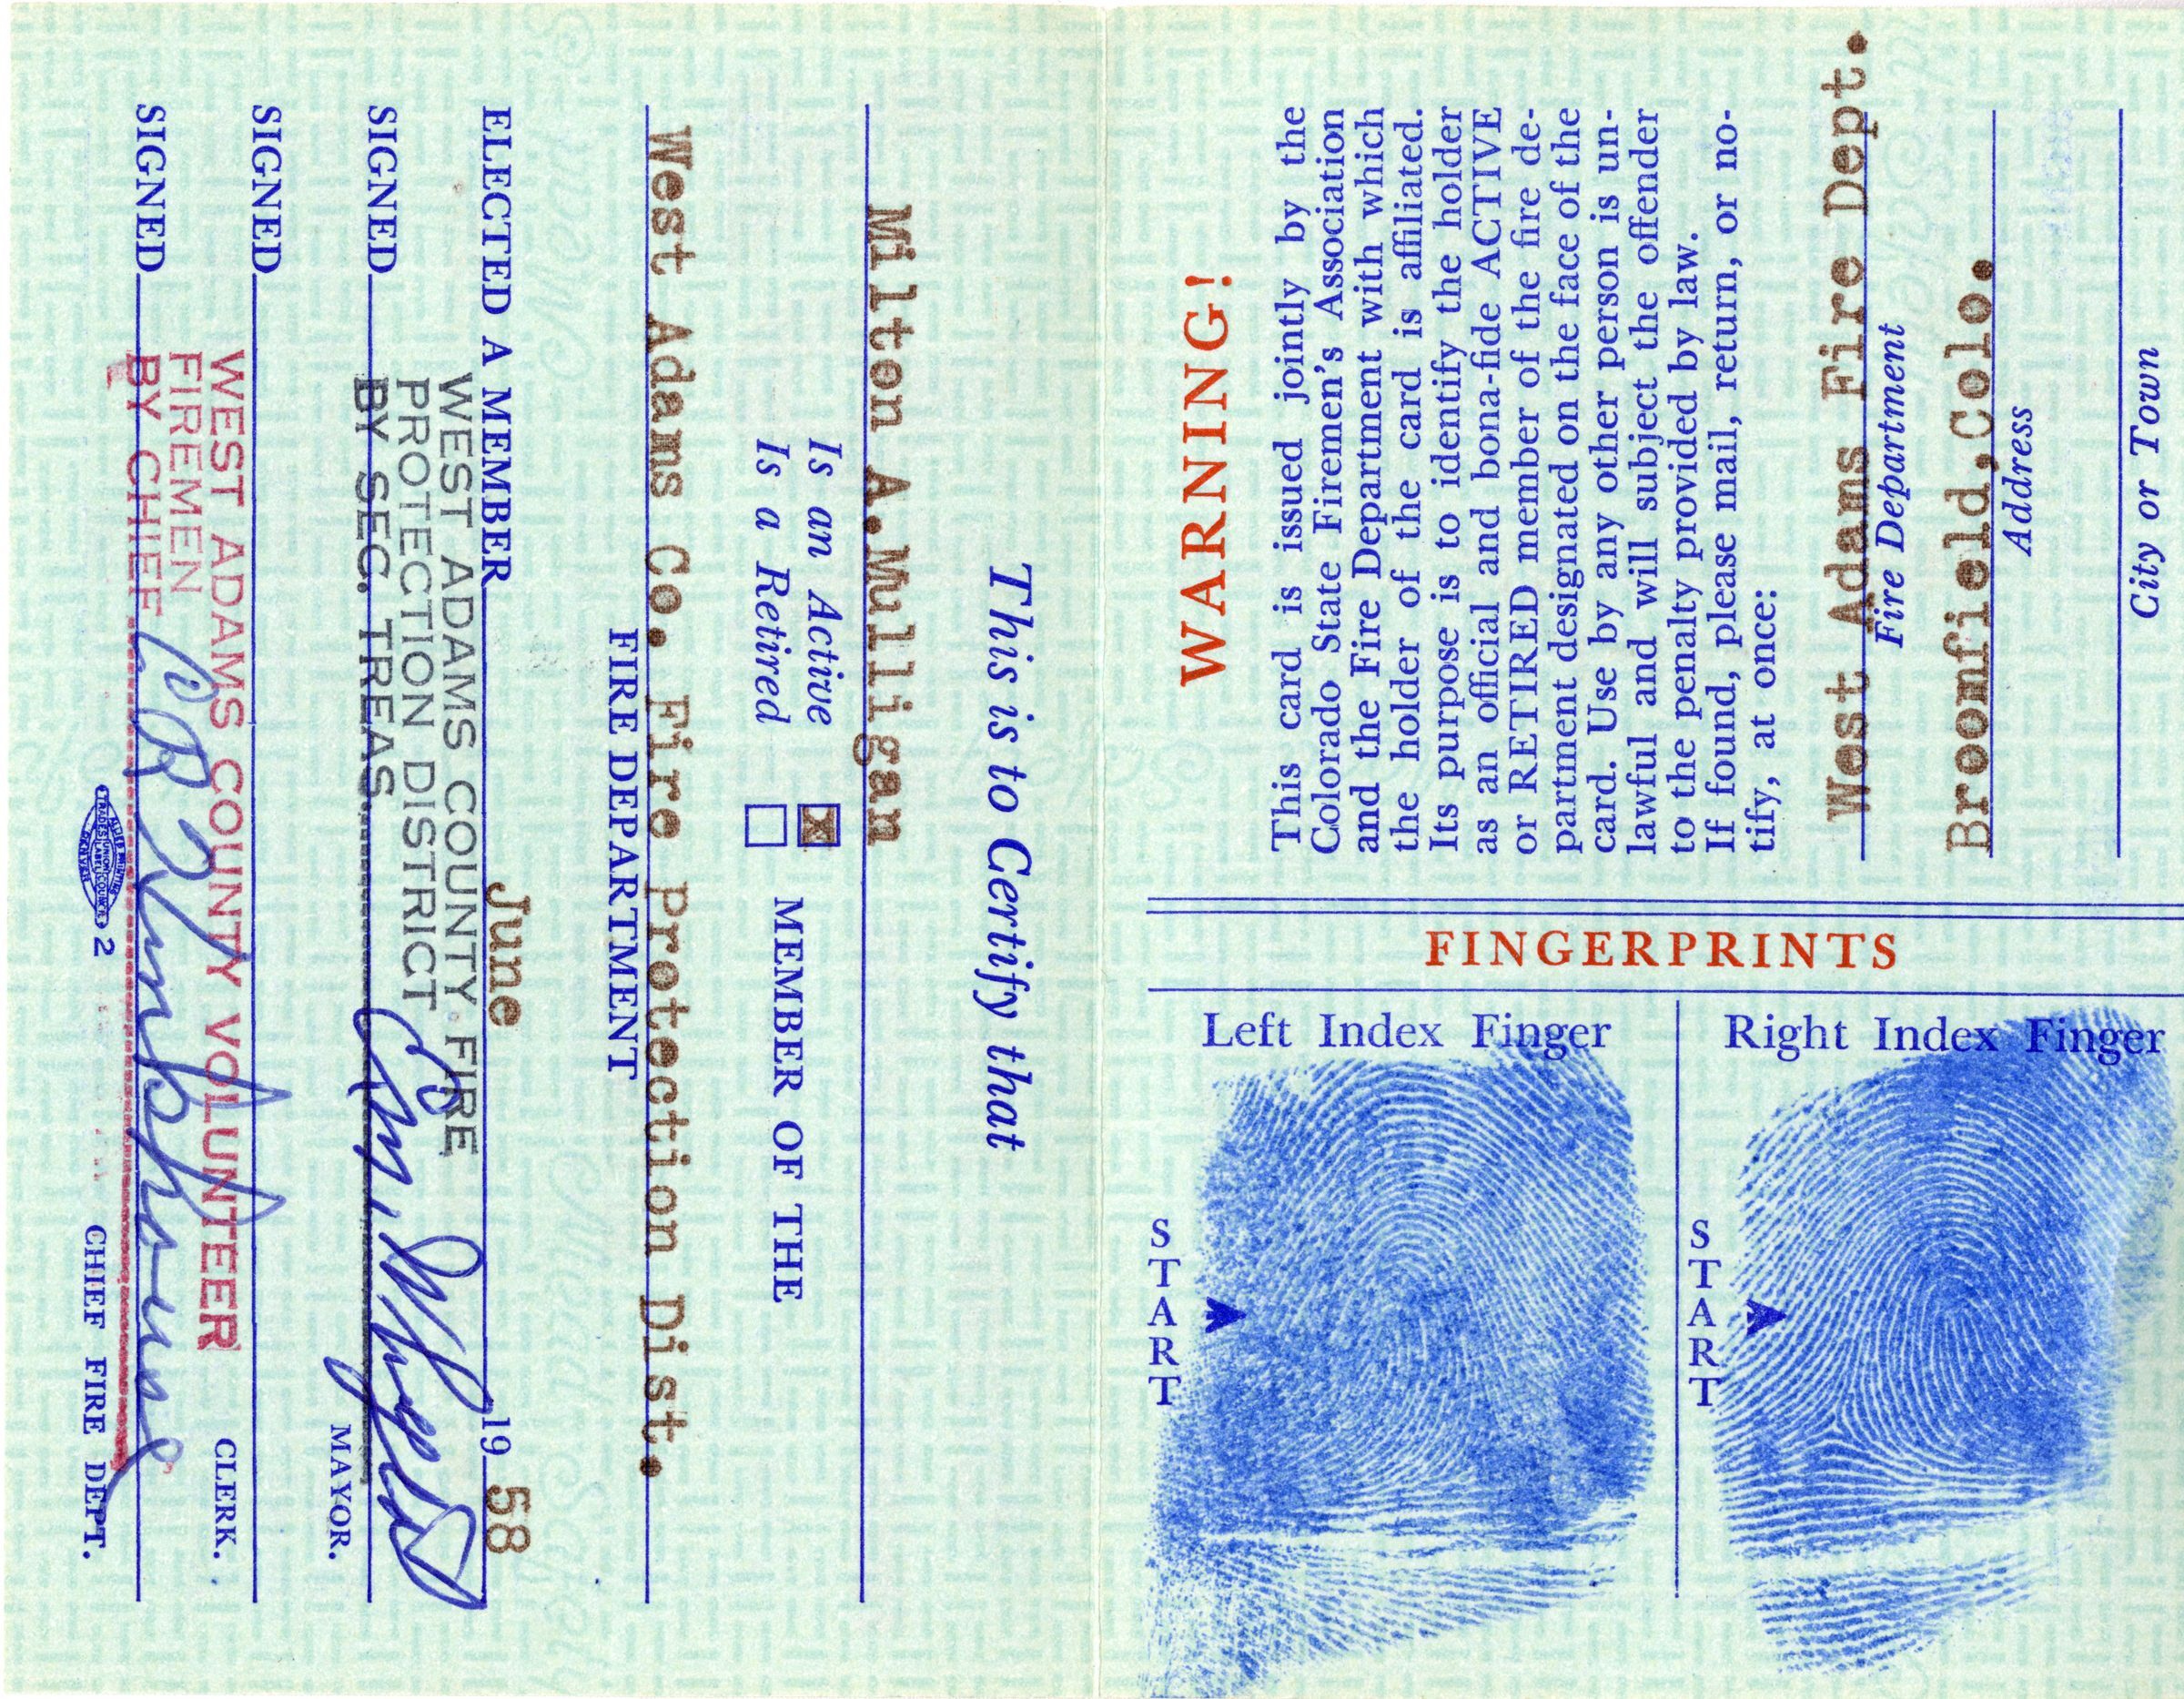 This is to Certify that
Milton A.Mulligan
Is an Active [X]
Is a Retired [ ]
MEMBER OF THE
West Adams Co. Fire Protection Dist.
FIRE DEPARTMENT
ELECTED A MEMBER June 19 58
WEST ADAMS COUNTY FIRE
PROTECTION DISTRICT
SIGNED BY SEC. TREAS.
MAYOR.
SIGNED
CLERK.
WEST ADAMS COUNTY VOLUNTEER
FIREMEN
SIGNED BY CHIEF
CHIEF FIRE DEPT.
ALLIED PRINTING
TRADES UNION LABEL COUNCIL
DENVER
2
WARNING!
This card is issued jointly by the
Colorado State Firemen's Association
and the Fire Department with which
the holder of the card is affiliated.
Its purpose is to identify the holder
as an official and bona-fide ACTIVE
or RETIRED member of the fire de-
partment designated on the face of the
card. Use by any other person is un-
lawful and will subject the offender
to the penalty provided by law.
If found, please mail, return, or no-
tify, at once:
West Adams Fire Dept.
Fire Department
Broomfield,Colo.
Address
City or Town
FINGERPRINTS
Left Index Finger
START
Right Index Finger
START